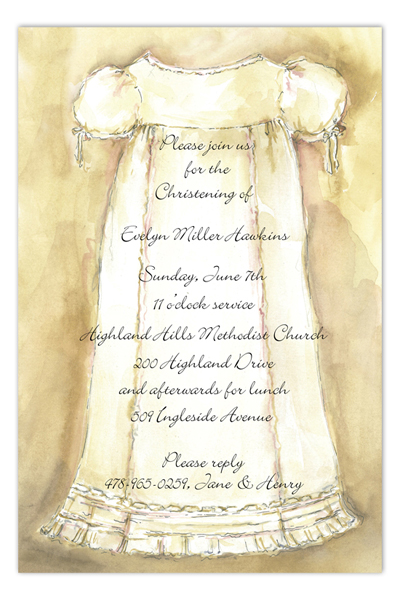 Please join us
for the
Christening of
Evelyn Miller Hawkins
Sunday, June 7th
11 o'clock service
Highland Hills Methodist Church
200 Highland Drive
and afterwards for lunch
509 Ingleside Avenue
Please reply
478-965-0259, Jane & Henry